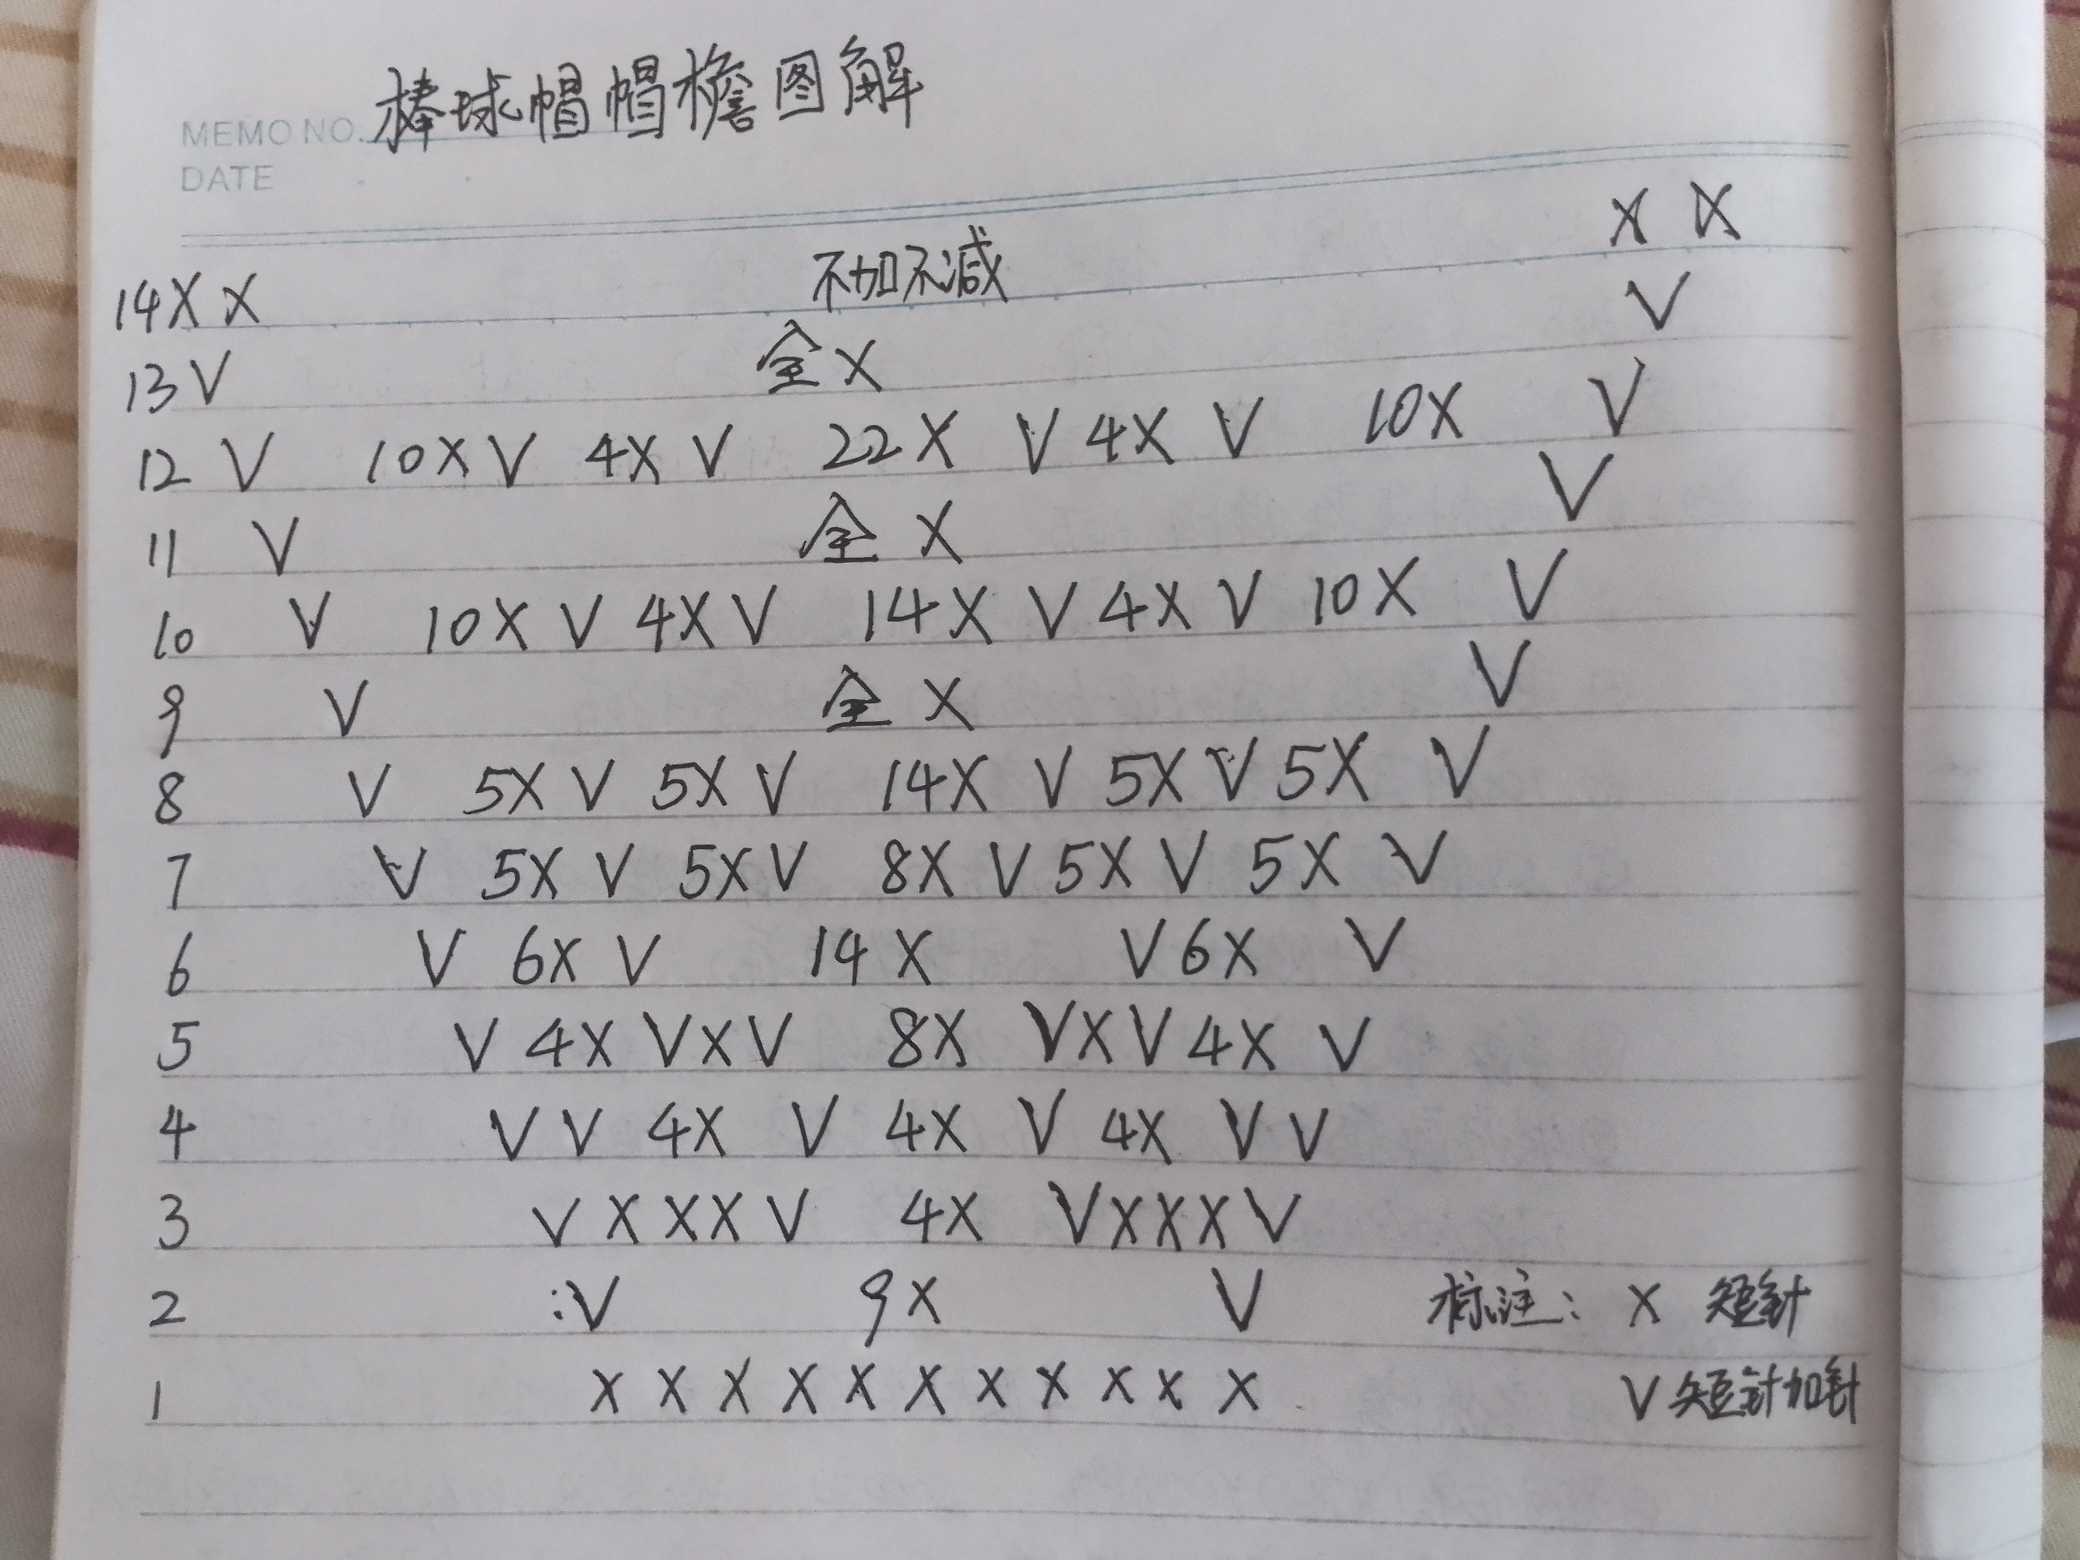 棒球帽帽檐图解
MEMO NO.
DATE
14 X X 不加不减 X X
13 V 全X V
12 V 10X V 4X V 22X V 4X V 10X V
11 V 全X V
10 V 10X V 4X V 14X V 4X V 10X V
9 V 全X V
8 V 5X V 5X V 14X V 5X V 5X V
7 V 5X V 5X V 8X V 5X V 5X V
6 V 6X V 14X V 6X V
5 V 4X V X V 8X V X V 4X V
4 V V 4X V 4X V 4X V V
3 V X X X V 4X V X X X V
2 :V 9X V 标注: X 短针
1 X X X X X X X X X X X V 短针加针